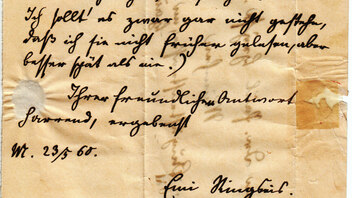 Ich sollt' es zwar gar nicht gestehn,
daß ich sie nicht früher gelesen, aber
besser spät als nie.)
Ihrer freundlichen Antwort
harrend, ergebenst
M. 23/5 60.
Emi Ringseis.